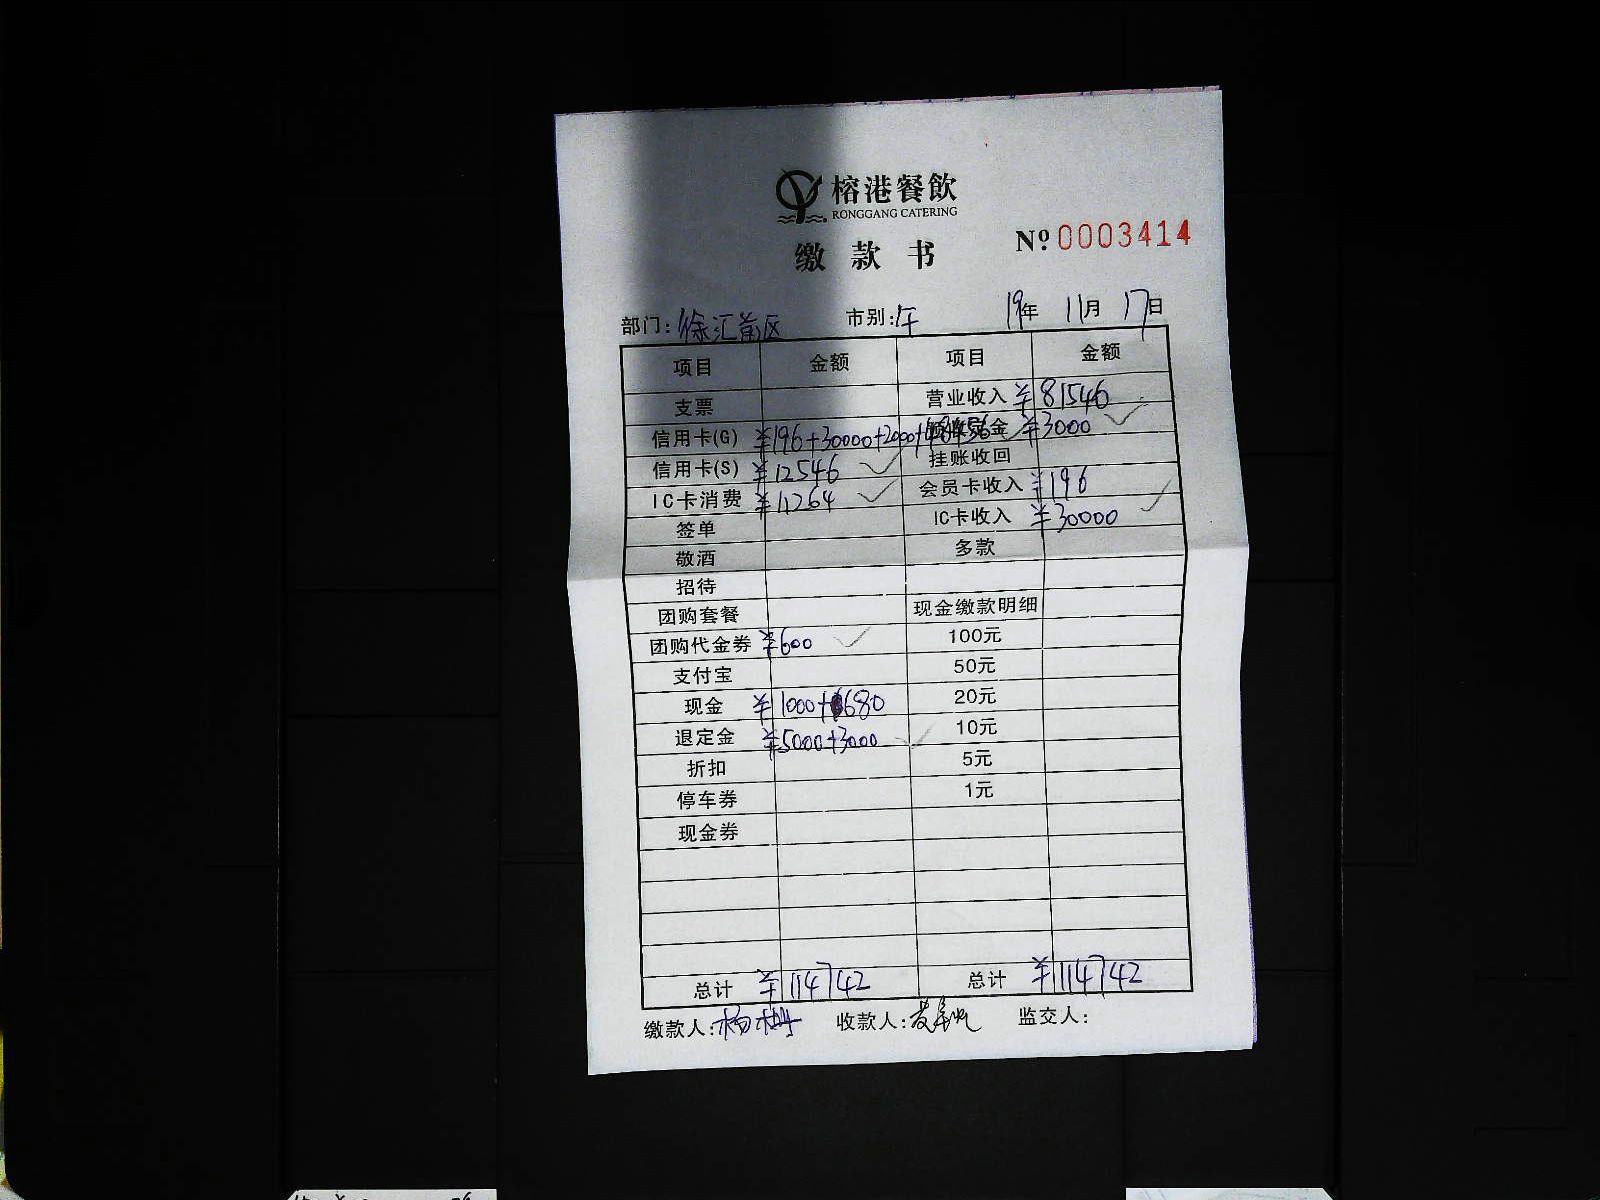 榕港餐飲
RONGGANG CATERING
缴款书
Nº 0003414
部门: 徐汇前区 市别: 午 19年 11月 17日
项目 金额 项目 金额
支票 营业收入 ¥81546
信用卡(G) ¥196+30000+2000+48456 预收定金 ¥3000
信用卡(S) ¥12546 挂账收回
IC卡消费 ¥11264 会员卡收入 ¥196
签单 IC卡收入 ¥30000
敬酒 多款
招待
团购套餐 现金缴款明细
团购代金券 ¥600 100元
支付宝 50元
现金 ¥1000+680 20元
退定金 ¥5000+3000 10元
折扣 5元
停车券 1元
现金券
总计 ¥114742 总计 ¥114742
缴款人: 杨 收款人: 监交人: